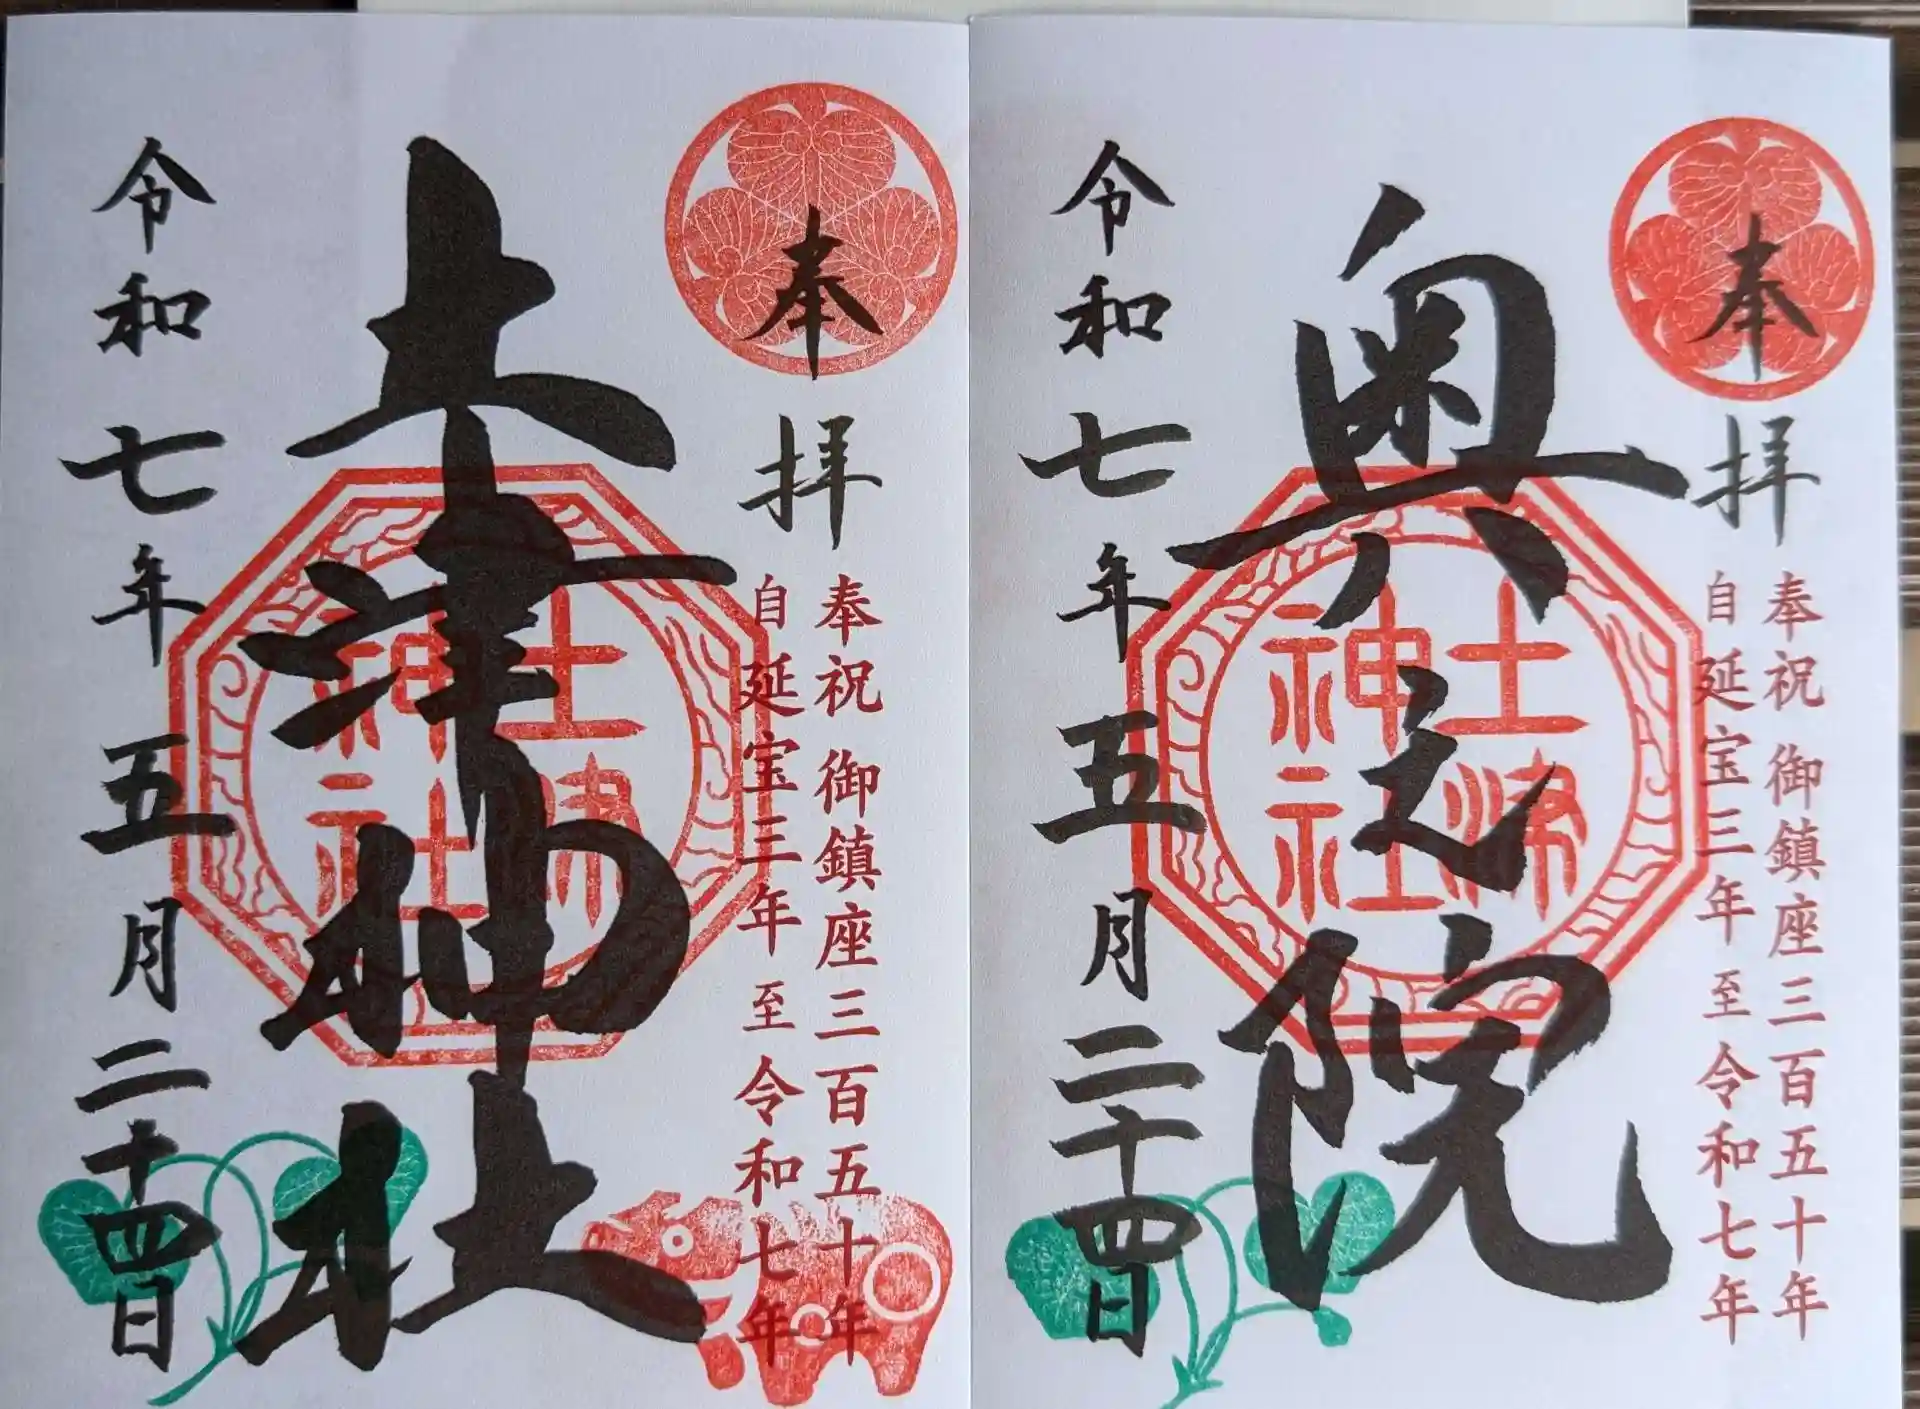 奉拝
奉祝 御鎮座三百五十年
自 延宝三年 至 令和七年
奥之院
土津
神社
令和七年五月二十四日
奉拝
奉祝 御鎮座三百五十年
自 延宝三年 至 令和七年
土津神社
土津
神社
令和七年五月二十四日